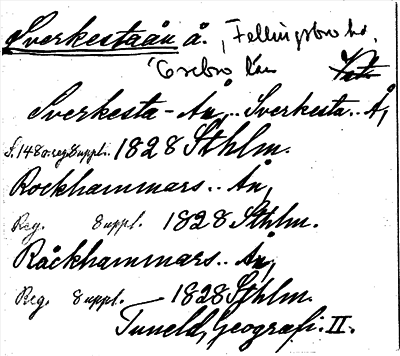 Sverkestaån å., Fellingsbro hd.
Örebro län
Sverkesta-Ån,.. Sverkesta.. Å,
s. 148 o. reg. Suppl. 1828 Sthlm.
Rockhammars.. Ån,
Reg. Suppl. 1828 Sthlm.
Råckhammars.. Ån,
Reg. Suppl. — 1828 Sthlm.
Tuneld, Geografi. II.